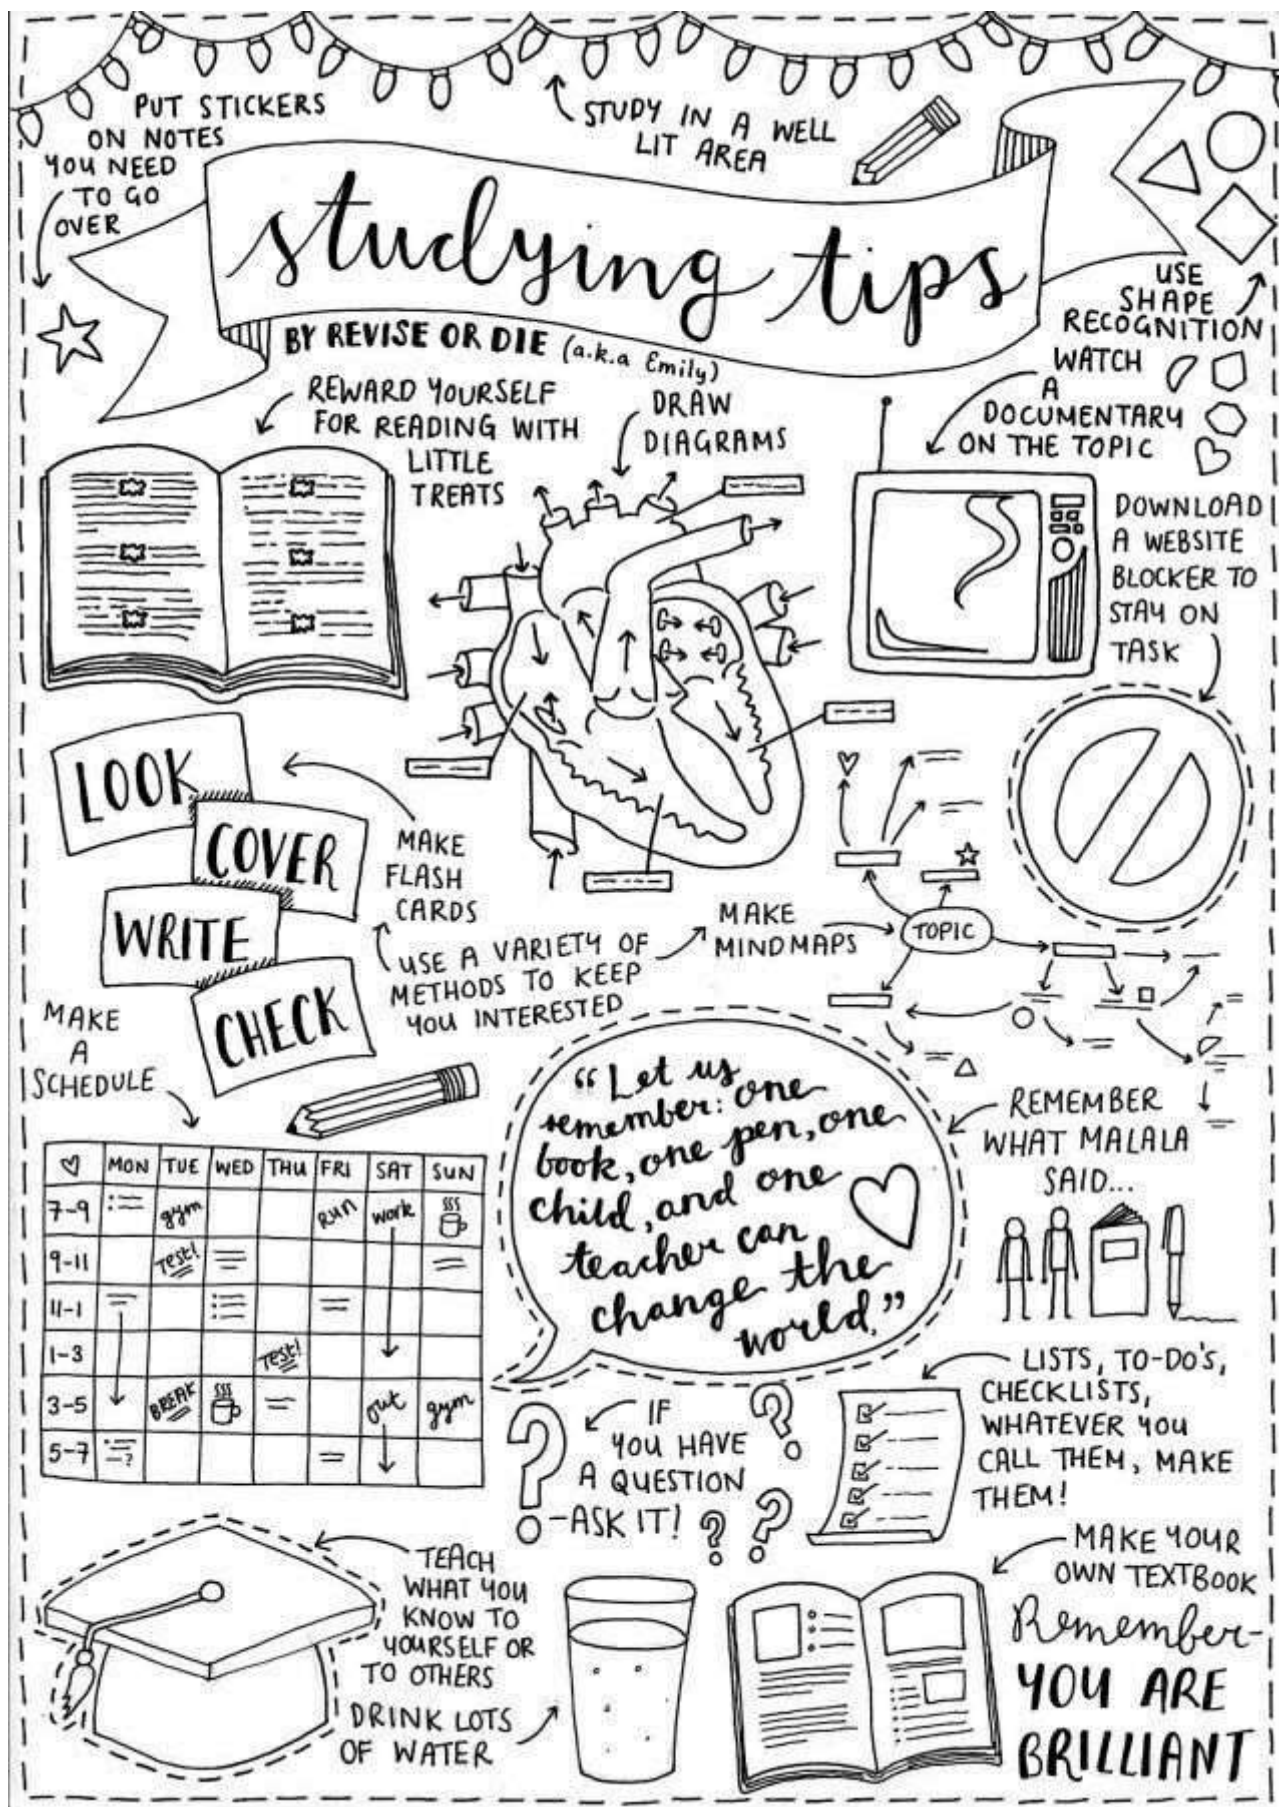 PUT STICKERS
ON NOTES
YOU NEED
TO GO
OVER
STUDY IN A WELL
LIT AREA
studying tips
BY REVISE OR DIE (a.k.a Emily)
USE
SHAPE
RECOGNITION
WATCH
A
DOCUMENTARY
ON THE TOPIC
REWARD YOURSELF
FOR READING WITH
LITTLE
TREATS
DRAW
DIAGRAMS
DOWNLOAD
A WEBSITE
BLOCKER TO
STAY ON
TASK
LOOK
COVER
WRITE
CHECK
MAKE
FLASH
CARDS
USE A VARIETY OF
METHODS TO KEEP
YOU INTERESTED
MAKE
MINDMAPS
TOPIC
MAKE
A
SCHEDULE
MON TUE WED THU FRI SAT SUN
7-9 gym run work
9-11 TEST!
11-1
1-3 TEST!
3-5 BREAK out gym
5-7 ?
"Let us
remember: one
book, one pen, one
child, and one
teacher can
change the
world."
REMEMBER
WHAT MALALA
SAID...
LISTS, TO-DO'S,
CHECKLISTS,
WHATEVER YOU
CALL THEM, MAKE
THEM!
IF
YOU HAVE
A QUESTION
-ASK IT!
TEACH
WHAT YOU
KNOW TO
YOURSELF OR
TO OTHERS
DRINK LOTS
OF WATER
MAKE YOUR
OWN TEXTBOOK
Remember-
YOU ARE
BRILLIANT